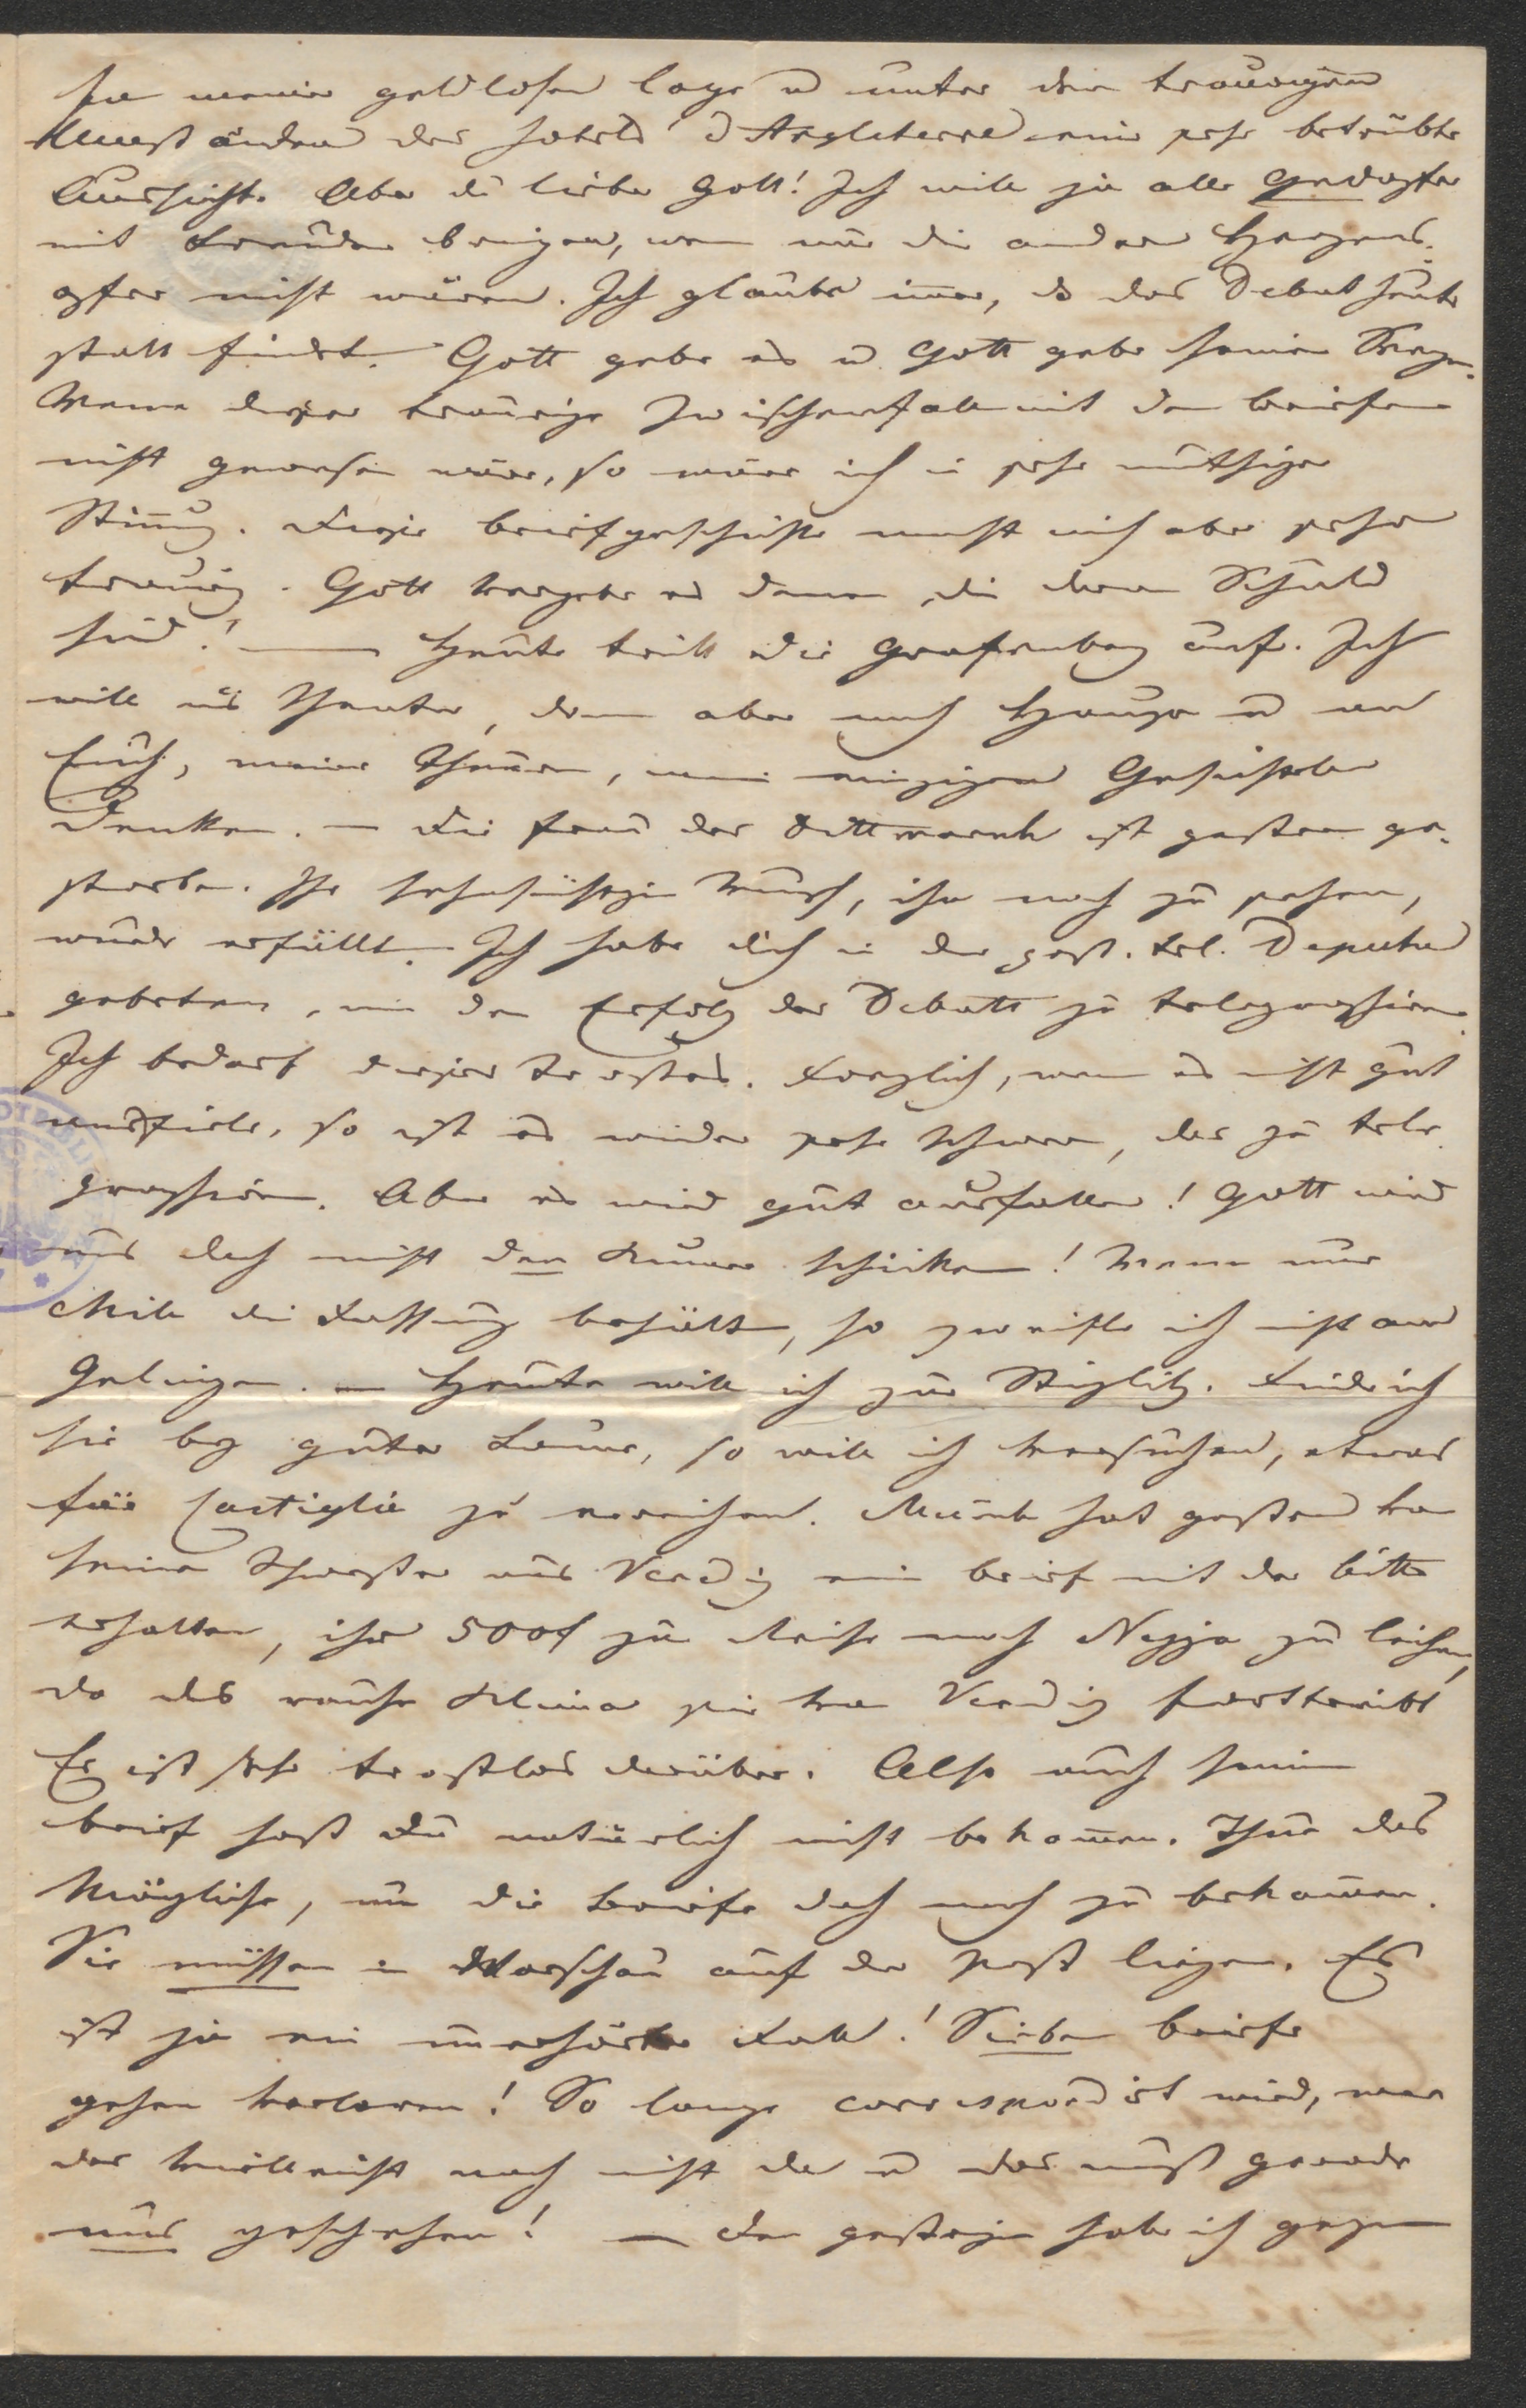 In meiner geldlosen Lage u unter den traurigen
Umständen des Hotels d'Angleterre eine sehr betrübte
Aussicht. Aber du lieber Gott! Ich will ja alle Geldopfer
mit Freuden bringen, wenn nur die anderen Herzens-
opfer nicht wären. Ich glaube immer, daß das Debut heute
statt findet. Gott gebe es u Gott gebe seinen Segen.
Wenn dieser traurige Zwischenfall mit den Briefen
nicht gewesen wäre, so wäre ich in sehr muthiger
Stimmung. Diese Briefgeschichte macht mich aber sehr
traurig. Gott vergebe es denen, die daran Schuld
sind! — Heute tritt die Grafenberg auf. Ich
will ins Theater, dann aber nach Hause u an
Euch, meine Theuren, mein einziges Geschäft
denken. — Die Frau des Dittmarsch ist gestern ge-
storben. Ihr sehnsüchtiger Wunsch, ihn noch zu sehen,
wurde erfüllt. Ich habe dich in der gest. tel. Depesche
gebeten, mir den Erfolg des Debuts zu telegraphiren.
Ich bedarf dieses Trostes. Freilich, wenn es nicht gut
ausfiele, so ist es wieder sehr schwer, das zu tele-
graphiren. Aber es wird gut ausfallen! Gott wird
uns doch nicht den Kummer schicken! Wenn nur
Mila die Fassung behält, so zweifle ich nicht am
Gelingen. — Heute will ich zur Stiglitz. Finde ich
sie bey guter Laune, so will ich versuchen, etwas
für Castiglia zu erreichen. Munk hat gestern von
seiner Schwester aus Venedig ein Brief mit der Bitte
erhalten, ihr 500 f zur Reise nach Nizza zu leihen,
da das rauhe Klima sie von Venedig forttreibt
Er ist sehr trostlos darüber. Also auch seinen
Brief hast du natürlich nicht bekommen. Thue das
Mögliche, um die Briefe doch noch zu bekommen.
Sie müssen in Warschau auf der Post liegen. Es
ist ja ein unerhörter Fall! Sieben Briefe
gehen verloren! So lange correspondirt wird, war
das vielleicht noch nicht da u das muß gerade
uns geschehen! — Den gestrigen habe ich gegen